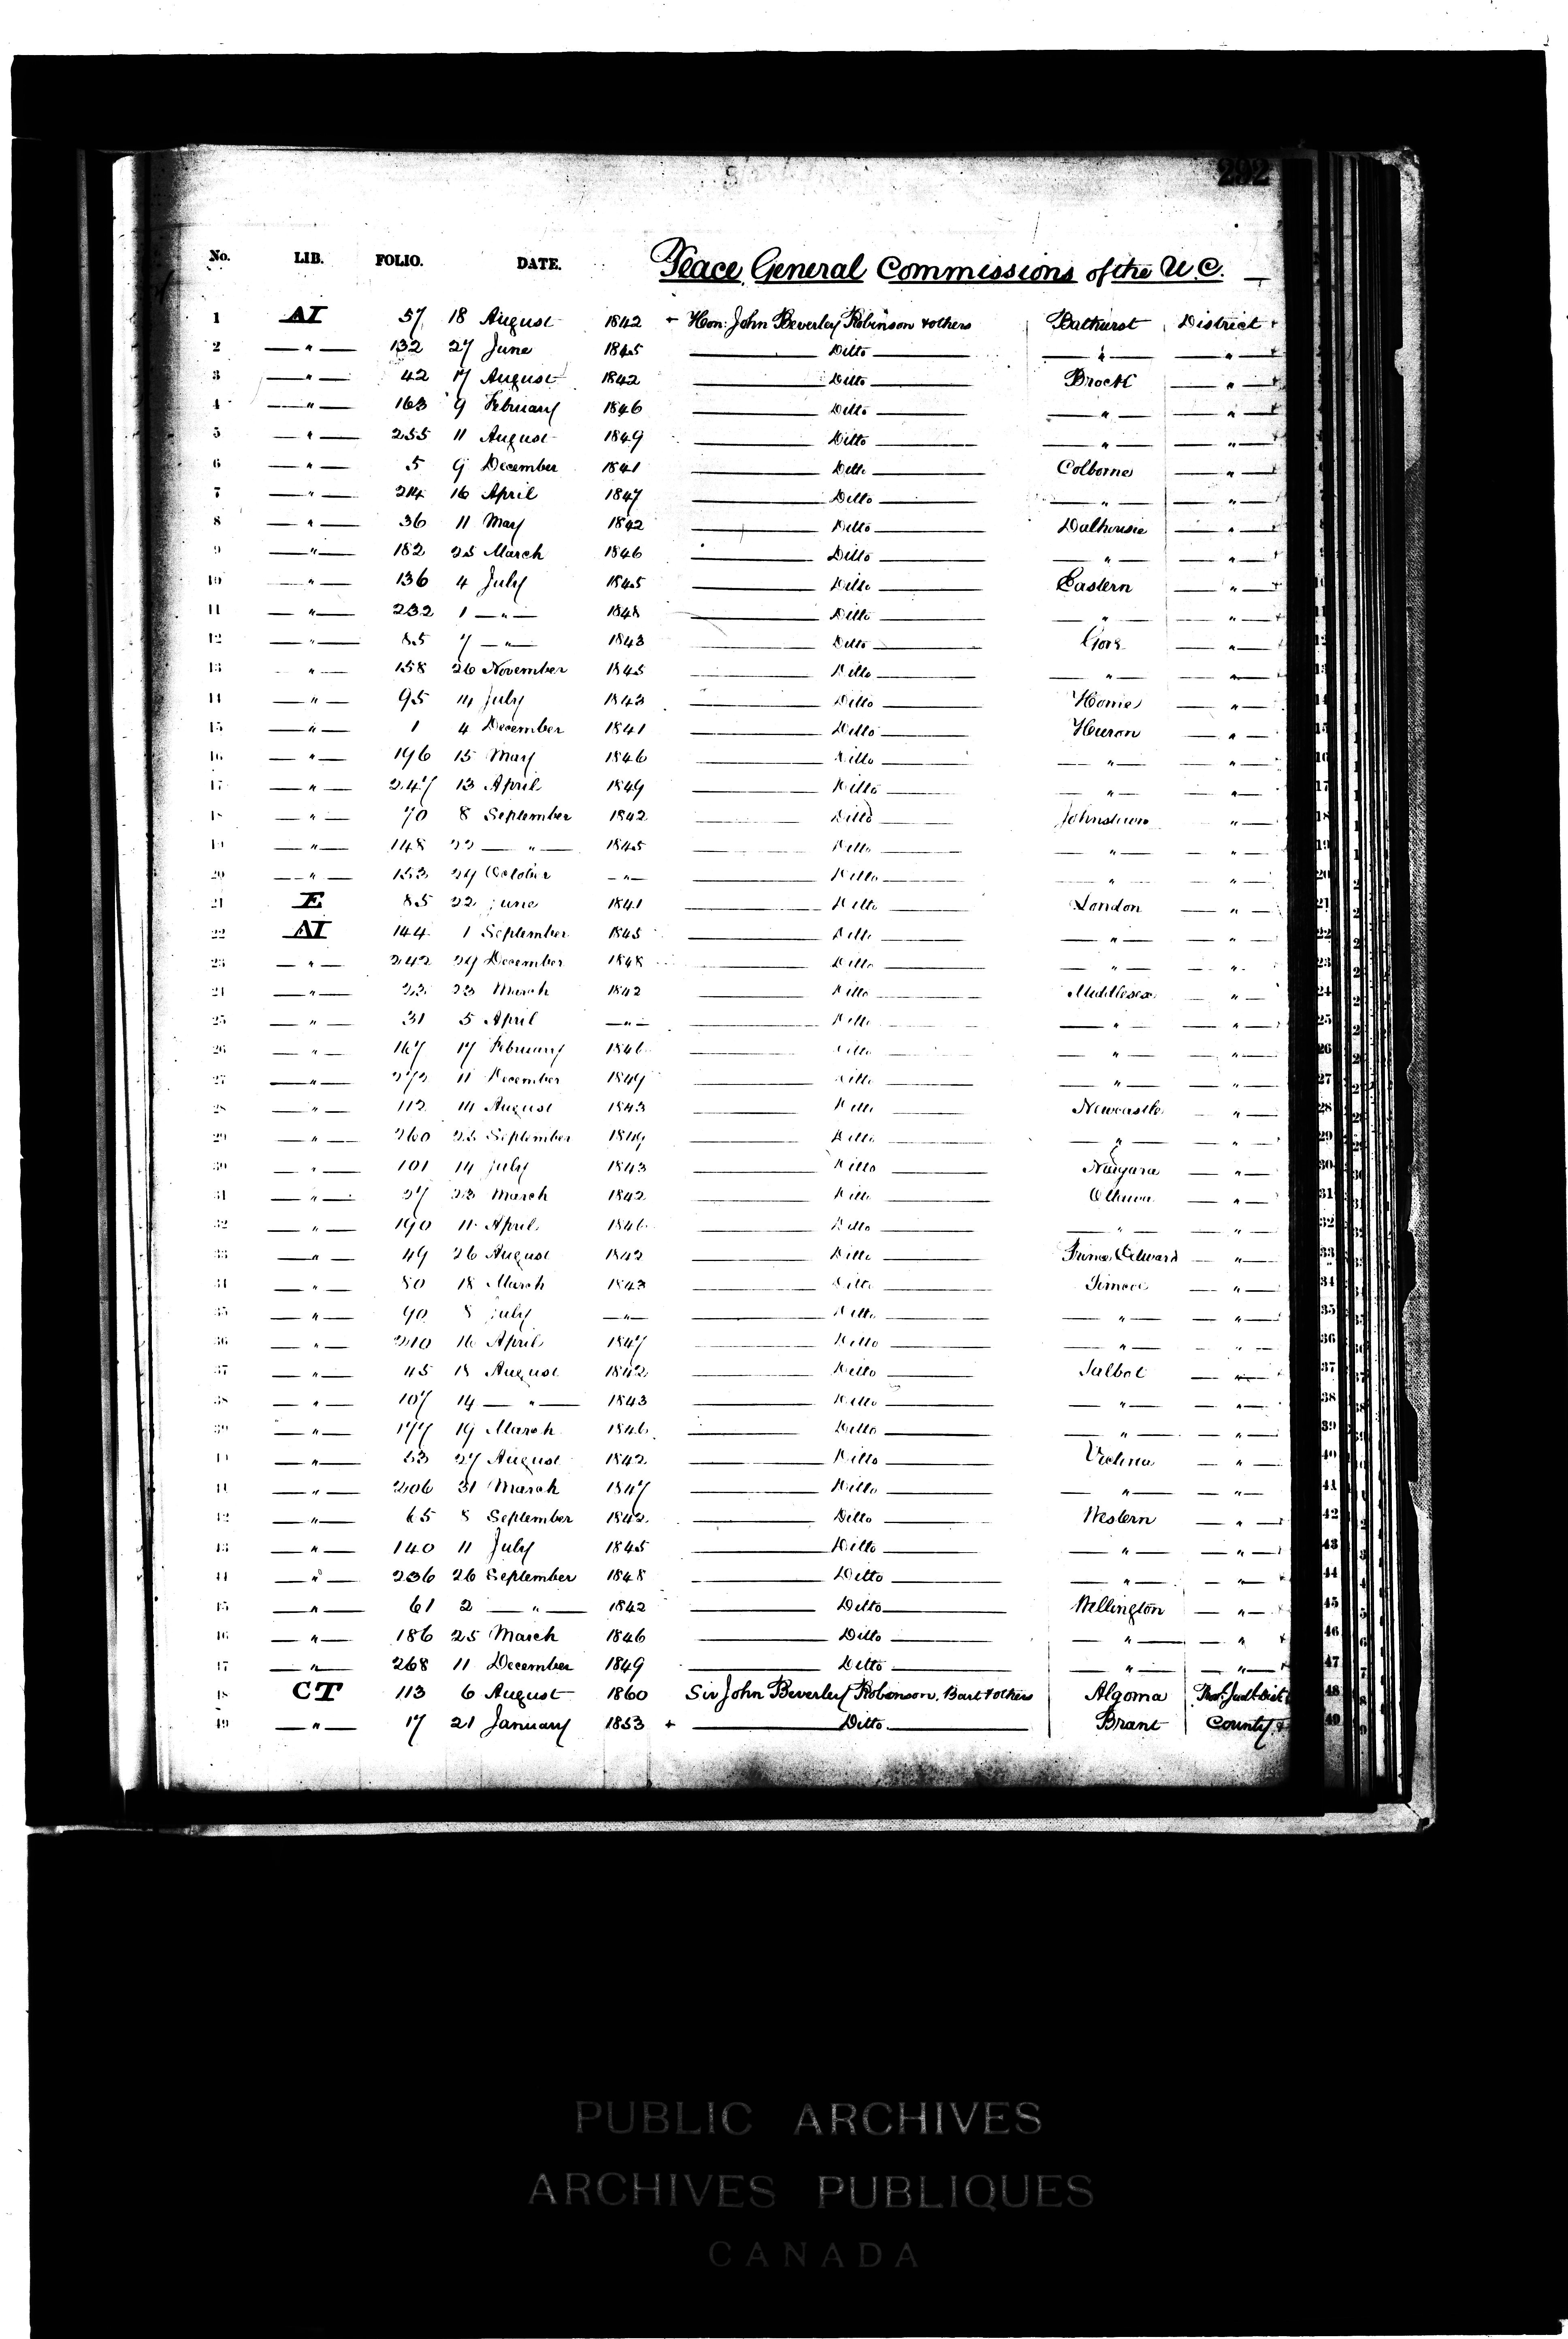 292
No. LIB. FOLIO. DATE. Peace, General Commissions of the U.C.
1 AI 57 18 August 1842 + Hon: John Beverley Robinson & others Bathurst District +
2 — " — 132 27 June 1845 Ditto — " — — " —
3 — " — 42 17 August 1842 Ditto Brock — " —
4 — " — 163 9 February 1846 Ditto — " — — " —
5 — " — 255 11 August 1849 Ditto — " — — " —
6 — " — 5 9 December 1841 Ditto Colborne — " —
7 — " — 214 16 April 1847 Ditto — " — — " —
8 — " — 36 11 May 1842 Ditto Dalhousie — " —
9 — " — 182 25 March 1846 Ditto — " — — " —
10 — " — 136 4 July 1845 Ditto Eastern — " —
11 — " — 232 1 — " — 1848 Ditto — " — — " —
12 — " — 85 7 — " — 1843 Ditto Gore — " —
13 — " — 158 26 November 1845 Ditto — " — — " —
14 — " — 95 14 July 1843 Ditto Home — " —
15 — " — 1 4 December 1841 Ditto Huron — " —
16 — " — 196 15 May 1846 Ditto — " — — " —
17 — " — 247 13 April 1849 Ditto — " — — " —
18 — " — 70 8 September 1842 Ditto Johnstown — " —
19 — " — 148 22 — " — 1845 Ditto — " — — " —
20 — " — 153 29 October — " — Ditto — " — — " —
21 E 85 22 June 1841 Ditto London — " —
22 AI 144 1 September 1845 Ditto — " — — " —
23 — " — 242 29 December 1848 Ditto — " — — " —
24 — " — 23 23 March 1842 Ditto Middlesex — " —
25 — " — 31 5 April — " — Ditto — " — — " —
26 — " — 167 17 February 1846 Ditto — " — — " —
27 — " — 272 11 December 1849 Ditto — " — — " —
28 — " — 112 14 August 1843 Ditto Newcastle — " —
29 — " — 260 25 September 1849 Ditto — " — — " —
30 — " — 101 14 July 1843 Ditto Niagara — " —
31 — " — 27 23 March 1842 Ditto Ottawa — " —
32 — " — 190 11 April 1846 Ditto — " — — " —
33 — " — 49 26 August 1842 Ditto Prince Edward — " —
34 — " — 80 18 March 1843 Ditto Simcoe — " —
35 — " — 90 8 July — " — Ditto — " — — " —
36 — " — 210 16 April 1847 Ditto — " — — " —
37 — " — 45 18 August 1842 Ditto Talbot — " —
38 — " — 107 14 — " — 1843 Ditto — " — — " —
39 — " — 177 19 March 1846 Ditto — " — — " —
40 — " — 53 27 August 1842 Ditto Victoria — " —
41 — " — 206 31 March 1847 Ditto — " — — " —
42 — " — 65 8 September 1842 Ditto Western — " —
43 — " — 140 11 July 1845 Ditto — " — — " —
44 — " — 236 26 September 1848 Ditto — " — — " —
45 — " — 61 2 — " — 1842 Ditto Wellington — " —
46 — " — 186 25 March 1846 Ditto — " — — " —
47 — " — 268 11 December 1849 Ditto — " — — " —
48 CT 113 6 August 1860 Sir John Beverley Robinson, Bart & others Algoma Prov: Judl. Dist
49 — " — 17 21 January 1853 + Ditto Brant County +
PUBLIC ARCHIVES
ARCHIVES PUBLIQUES
CANADA